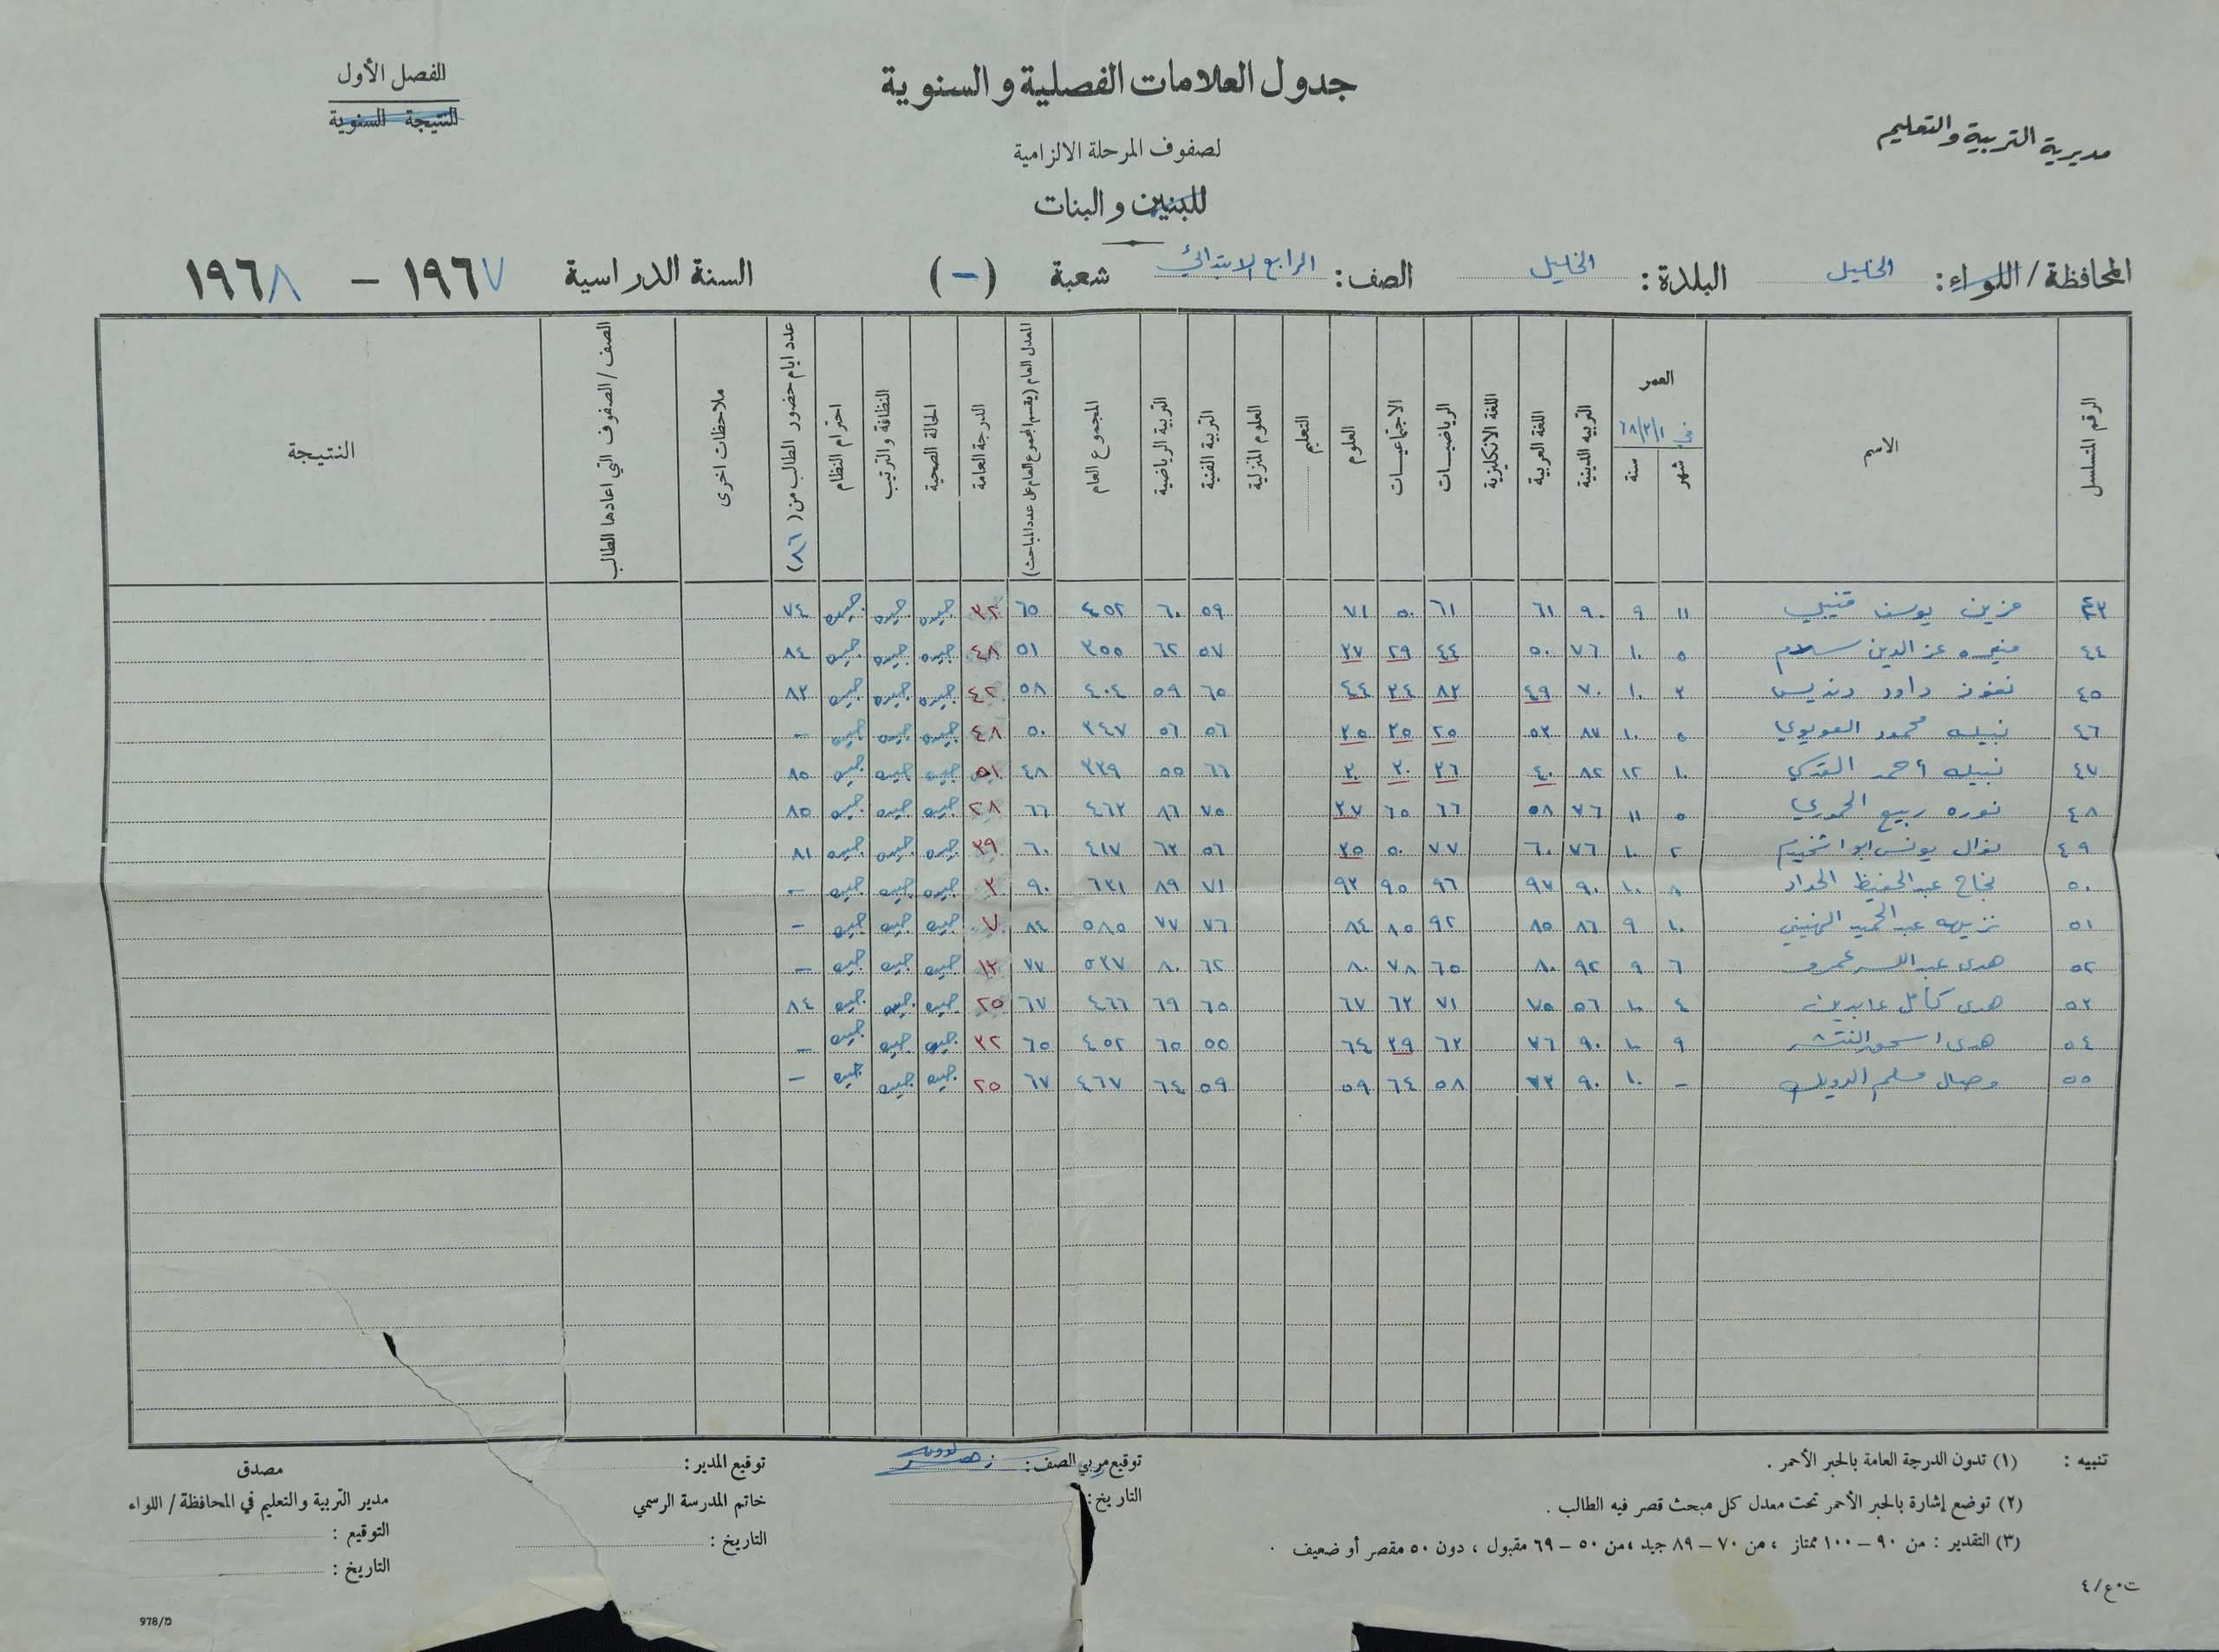 جدول العلامات الفصلية والسنوية
الفصل الأول
النتيجة السنوية
مديرية التربية والتعليم
لصفوف المرحلة الالزامية
للبنين والبنات
المحافظة / اللواء: الخليل البلدة: الخليل الصف: الرابع الابتدائي شعبة (-) السنة الدراسية ١٩٦٧ - ١٩٦٨
الرقم المتسلسل الاسم العمر في ٦٨/٣/١ شهر سنة التربيه الدينية اللغة العربية اللغة الانكليزية الرياضيات الاجتماعيات العلوم التعليم العلوم المنزلية التربية الفنية التربية الرياضية المجموع العام المعدل العام (يقسم المجموع العام على عدد المباحث) الدرجة العامة الحالة الصحية النظافة والترتيب احترام النظام عدد ايام حضور الطالب من (٨٦) ملاحظات اخرى الصف / الصفوف التي اعادها الطالب النتيجة
٤٣ يوسف ١١ ٩ ٩٠ ٦١ ٦١ ٥٠ ٧١ ٥٩ ٦٠ ٤٥٢ ٦٥ ٣٢ جيده جيده جيده ٧٤
٤٤ عز الدين سلام ٥ ١٠ ٧٦ ٥٠ ٤٤ ٢٩ ٣٧ ٥٧ ٦٢ ٣٥٥ ٥١ ٤٨ جيده جيده جيده ٨٤
٤٥ نفوذ داود دنديس ٢ ١٠ ٧٠ ٤٩ ٨٣ ٣٤ ٤٤ ٦٥ ٥٩ ٤٠٤ ٥٨ ٤٢ جيده جيده جيده ٨٣
٤٦ نبيله محمود العويوي ٥ ١٠ ٨٧ ٥٣ ٢٥ ٣٥ ٣٥ ٥٦ ٥٦ ٣٤٧ ٥٠ ٤٨ جيده جيده جيده -
٤٧ نبيله أحمد ١٠ ١٢ ٨٢ ٤٠ ٣٦ ٣٠ ٣٠ ٦٦ ٥٥ ٣٣٩ ٤٨ ٥١ جيده جيده جيده ٨٥
٤٨ نوره ربيع المحموري ٥ ١١ ٧٦ ٥٨ ٦٦ ٦٥ ٣٧ ٧٥ ٨٦ ٤٦٣ ٦٦ ٢٨ جيده جيده جيده ٨٥
٤٩ نوال يونس ابو اشخيدم ٢ ١٠ ٧٦ ٦٠ ٧٧ ٥٠ ٣٥ ٥٦ ٦٣ ٤١٧ ٦٠ ٣٩ جيده جيده جيده ٨١
٥٠ نجاح عبد الحفيظ الحداد ٨ ١٠ ٩٠ ٩٧ ٩٦ ٩٥ ٩٣ ٧١ ٨٩ ٦٣١ ٩٠ ٣ جيده جيده جيده -
٥١ نزيهه عبد الحميد الهنيني ١٠ ٩ ٨٦ ٨٥ ٩٢ ٨٥ ٨٤ ٧٦ ٧٧ ٥٨٥ ٨٤ ٧ جيده جيده جيده -
٥٢ هدى عبد الله عمرو ٦ ٩ ٩٢ ٨٠ ٦٥ ٧٨ ٨٠ ٦٢ ٨٠ ٥٣٧ ٧٧ ١٣ جيده جيده جيده -
٥٣ هدى كامل عابدين ٤ ١٠ ٥٦ ٧٥ ٧١ ٦٣ ٦٧ ٦٥ ٦٩ ٤٦٦ ٦٧ ٢٥ جيده جيده جيده ٨٤
٥٤ هدى اسحق النتشه ٩ ١٠ ٩٠ ٧٦ ٦٣ ٣٩ ٦٤ ٥٥ ٦٥ ٤٥٢ ٦٥ ٣٢ جيده جيده جيده -
٥٥ وصال مسلم الدويك - ١٠ ٩٠ ٧٣ ٥٨ ٦٤ ٥٩ ٥٩ ٦٤ ٤٦٧ ٦٧ ٢٥ جيده جيده جيده -
تنبيه : (١) تدون الدرجة العامة بالحبر الأحمر .
(٢) توضع إشارة بالحبر الأحمر تحت معدل كل مبحث قصر فيه الطالب .
(٣) التقدير : من ٩٠ - ١٠٠ ممتاز ، من ٧٠ - ٨٩ جيد ، من ٥٠ - ٦٩ مقبول ، دون ٥٠ مقصر أو ضعيف .
توقيع مربي الصف :
التاريخ :
توقيع المدير :
خاتم المدرسة الرسمي
التاريخ :
مصدق
مدير التربية والتعليم في المحافظة / اللواء
التوقيع :
التاريخ :
ت.ع/٤
978/מ